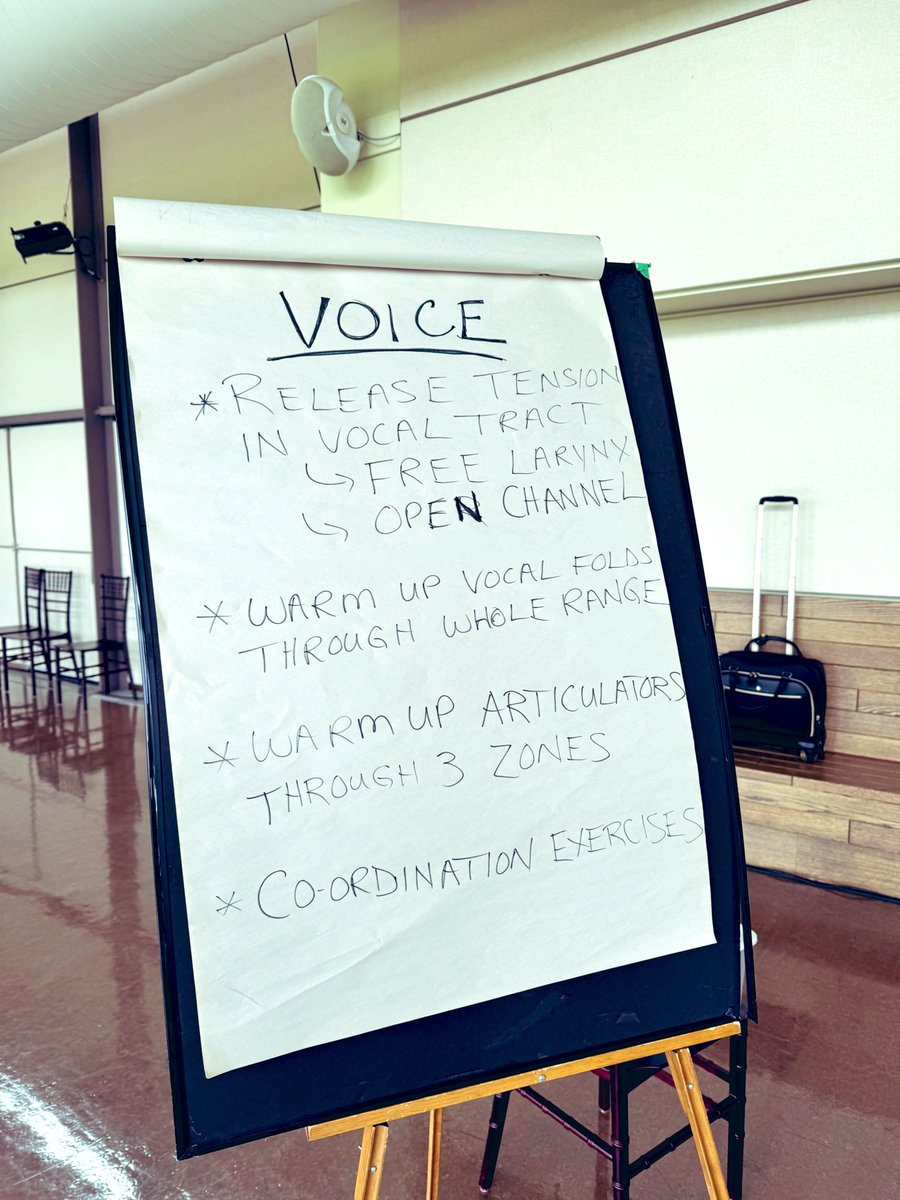 VOICE
* RELEASE TENSION
IN VOCAL TRACT
↳ FREE LARYNX
↳ OPEN CHANNEL
* WARM UP VOCAL FOLDS
THROUGH WHOLE RANGE
* WARM UP ARTICULATORS
THROUGH 3 ZONES
* CO-ORDINATION EXERCISES